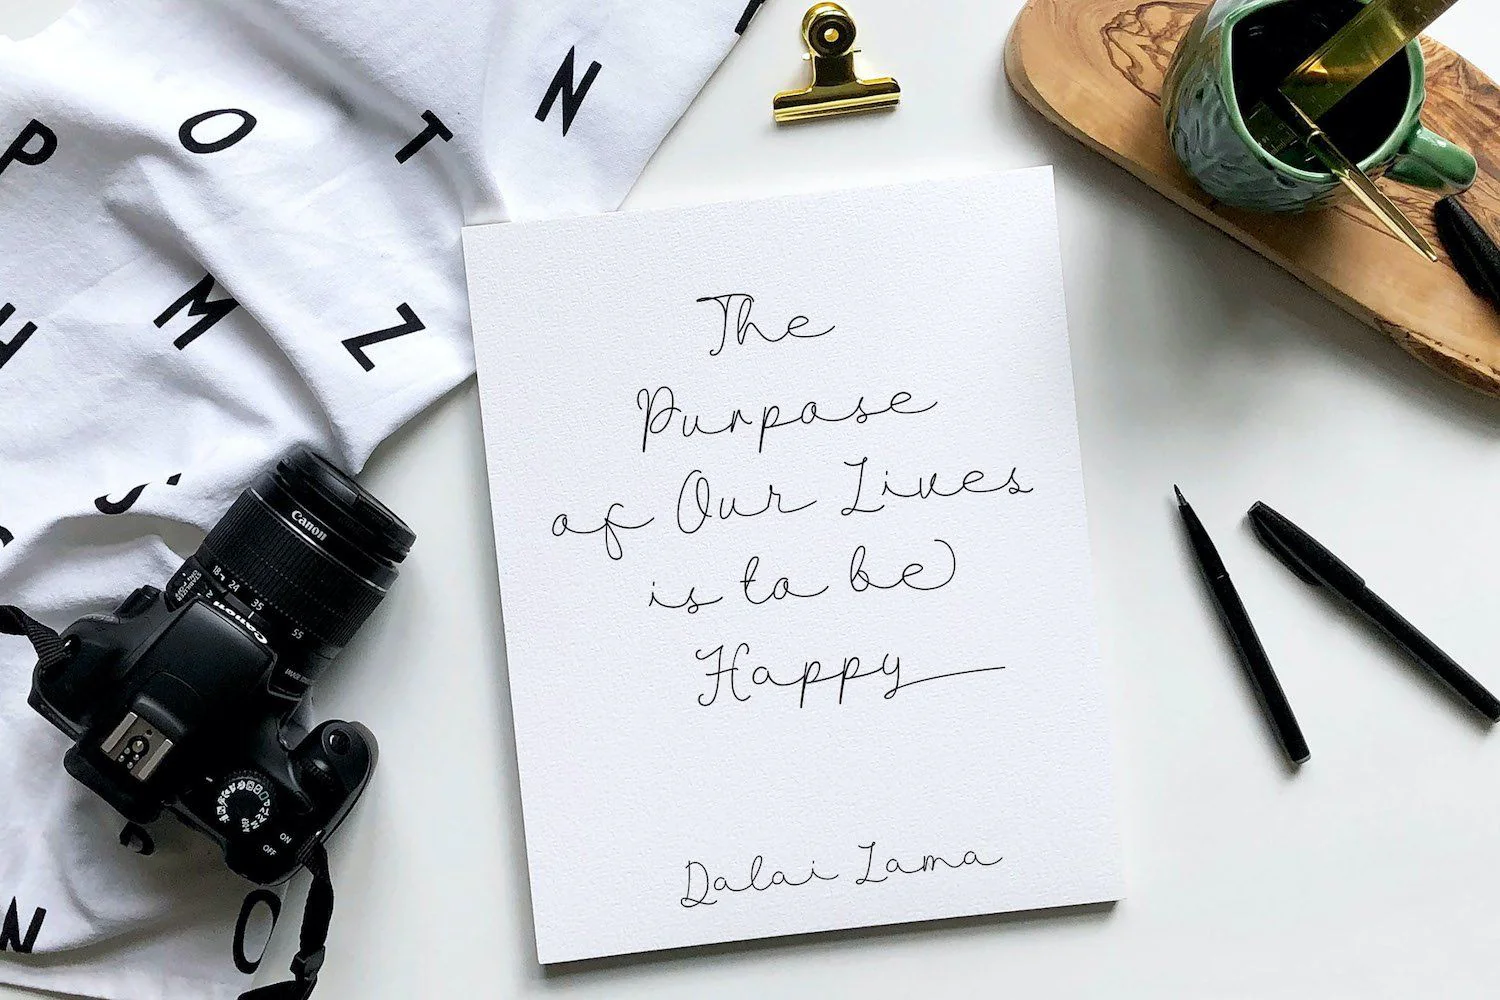 P O T N
M Z
The
Purpose
of Our Lives
is to be
Happy
Dalai Lama
Canon
18 24 35 55
Canon
ON
OFF
N O